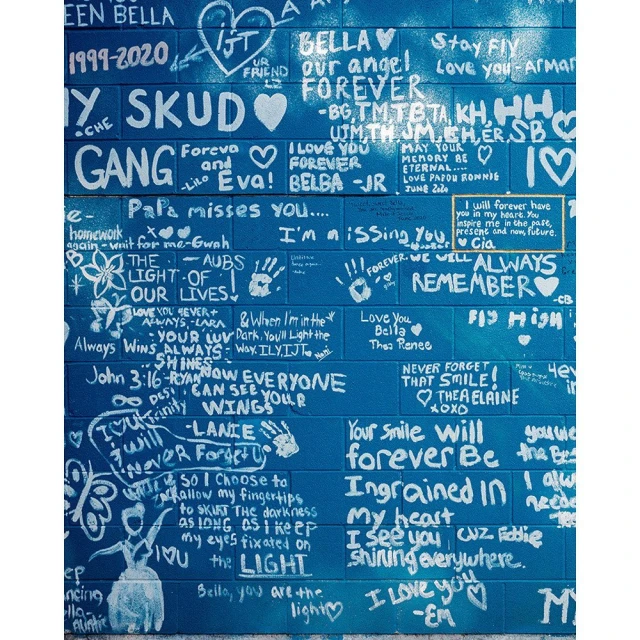 EEN BELLA
1999-2020
IJT
UR
FRIEND
LZ
BELLA
our angel
FOREVER
-BG, TM, TB, TA, KH, HH
UJM, TH, JM, EH, ER, SB
Stay FLY
Love you - Armar
Y SKUD
.CHE
GANG
Foreva
and
Eva!
-LiLo
I LOVE YOU
FOREVER
BELBA -JR
MAY YOUR
MEMORY BE
ETERNAL....
LOVE PAPOU RONNIE
JUNE 2020
I
e-
homework
again - wait for me - Gwah
PaPa misses you....
I'm missing You
I will forever have
you in my heart. You
inspire me in the past,
present and now, future.
Cia
B
THE
LIGHT OF
OUR LIVES!
-AUBS
FOREVER
WE WILL ALWAYS
REMEMBER
-CB
LOVE YOU 4EVER +
ALWAYS -LARA
Always Wins
YOUR LUV
ALWAYS
SHINES
& When I'm in the
Dark, You'll Light the
Way. ILY, IJT
Love You
Bella
Thea Renee
Fly High
John 3:16 -RYAN
NOW EVERYONE
CAN SEE YOUR
WINGS
-LANIE
NEVER FORGET
THAT SMILE!
THEA ELAINE
XOXO
4ev
in
Trinity
I U
I will
Never Forget U
Your smile will
forever Be
Ingrained IN
My heart
you we
the Bes
I alw
neede
So I choose to
allow my fingertips
to SKIRT the darkness
as LONG as I keep
my eyes fixated on
the LIGHT
I see you
shining everywhere.
CUZ Eddie
I U
ep
ncing
lla-
Auntie
Bella, you are the
light
I love you
-EM
MY